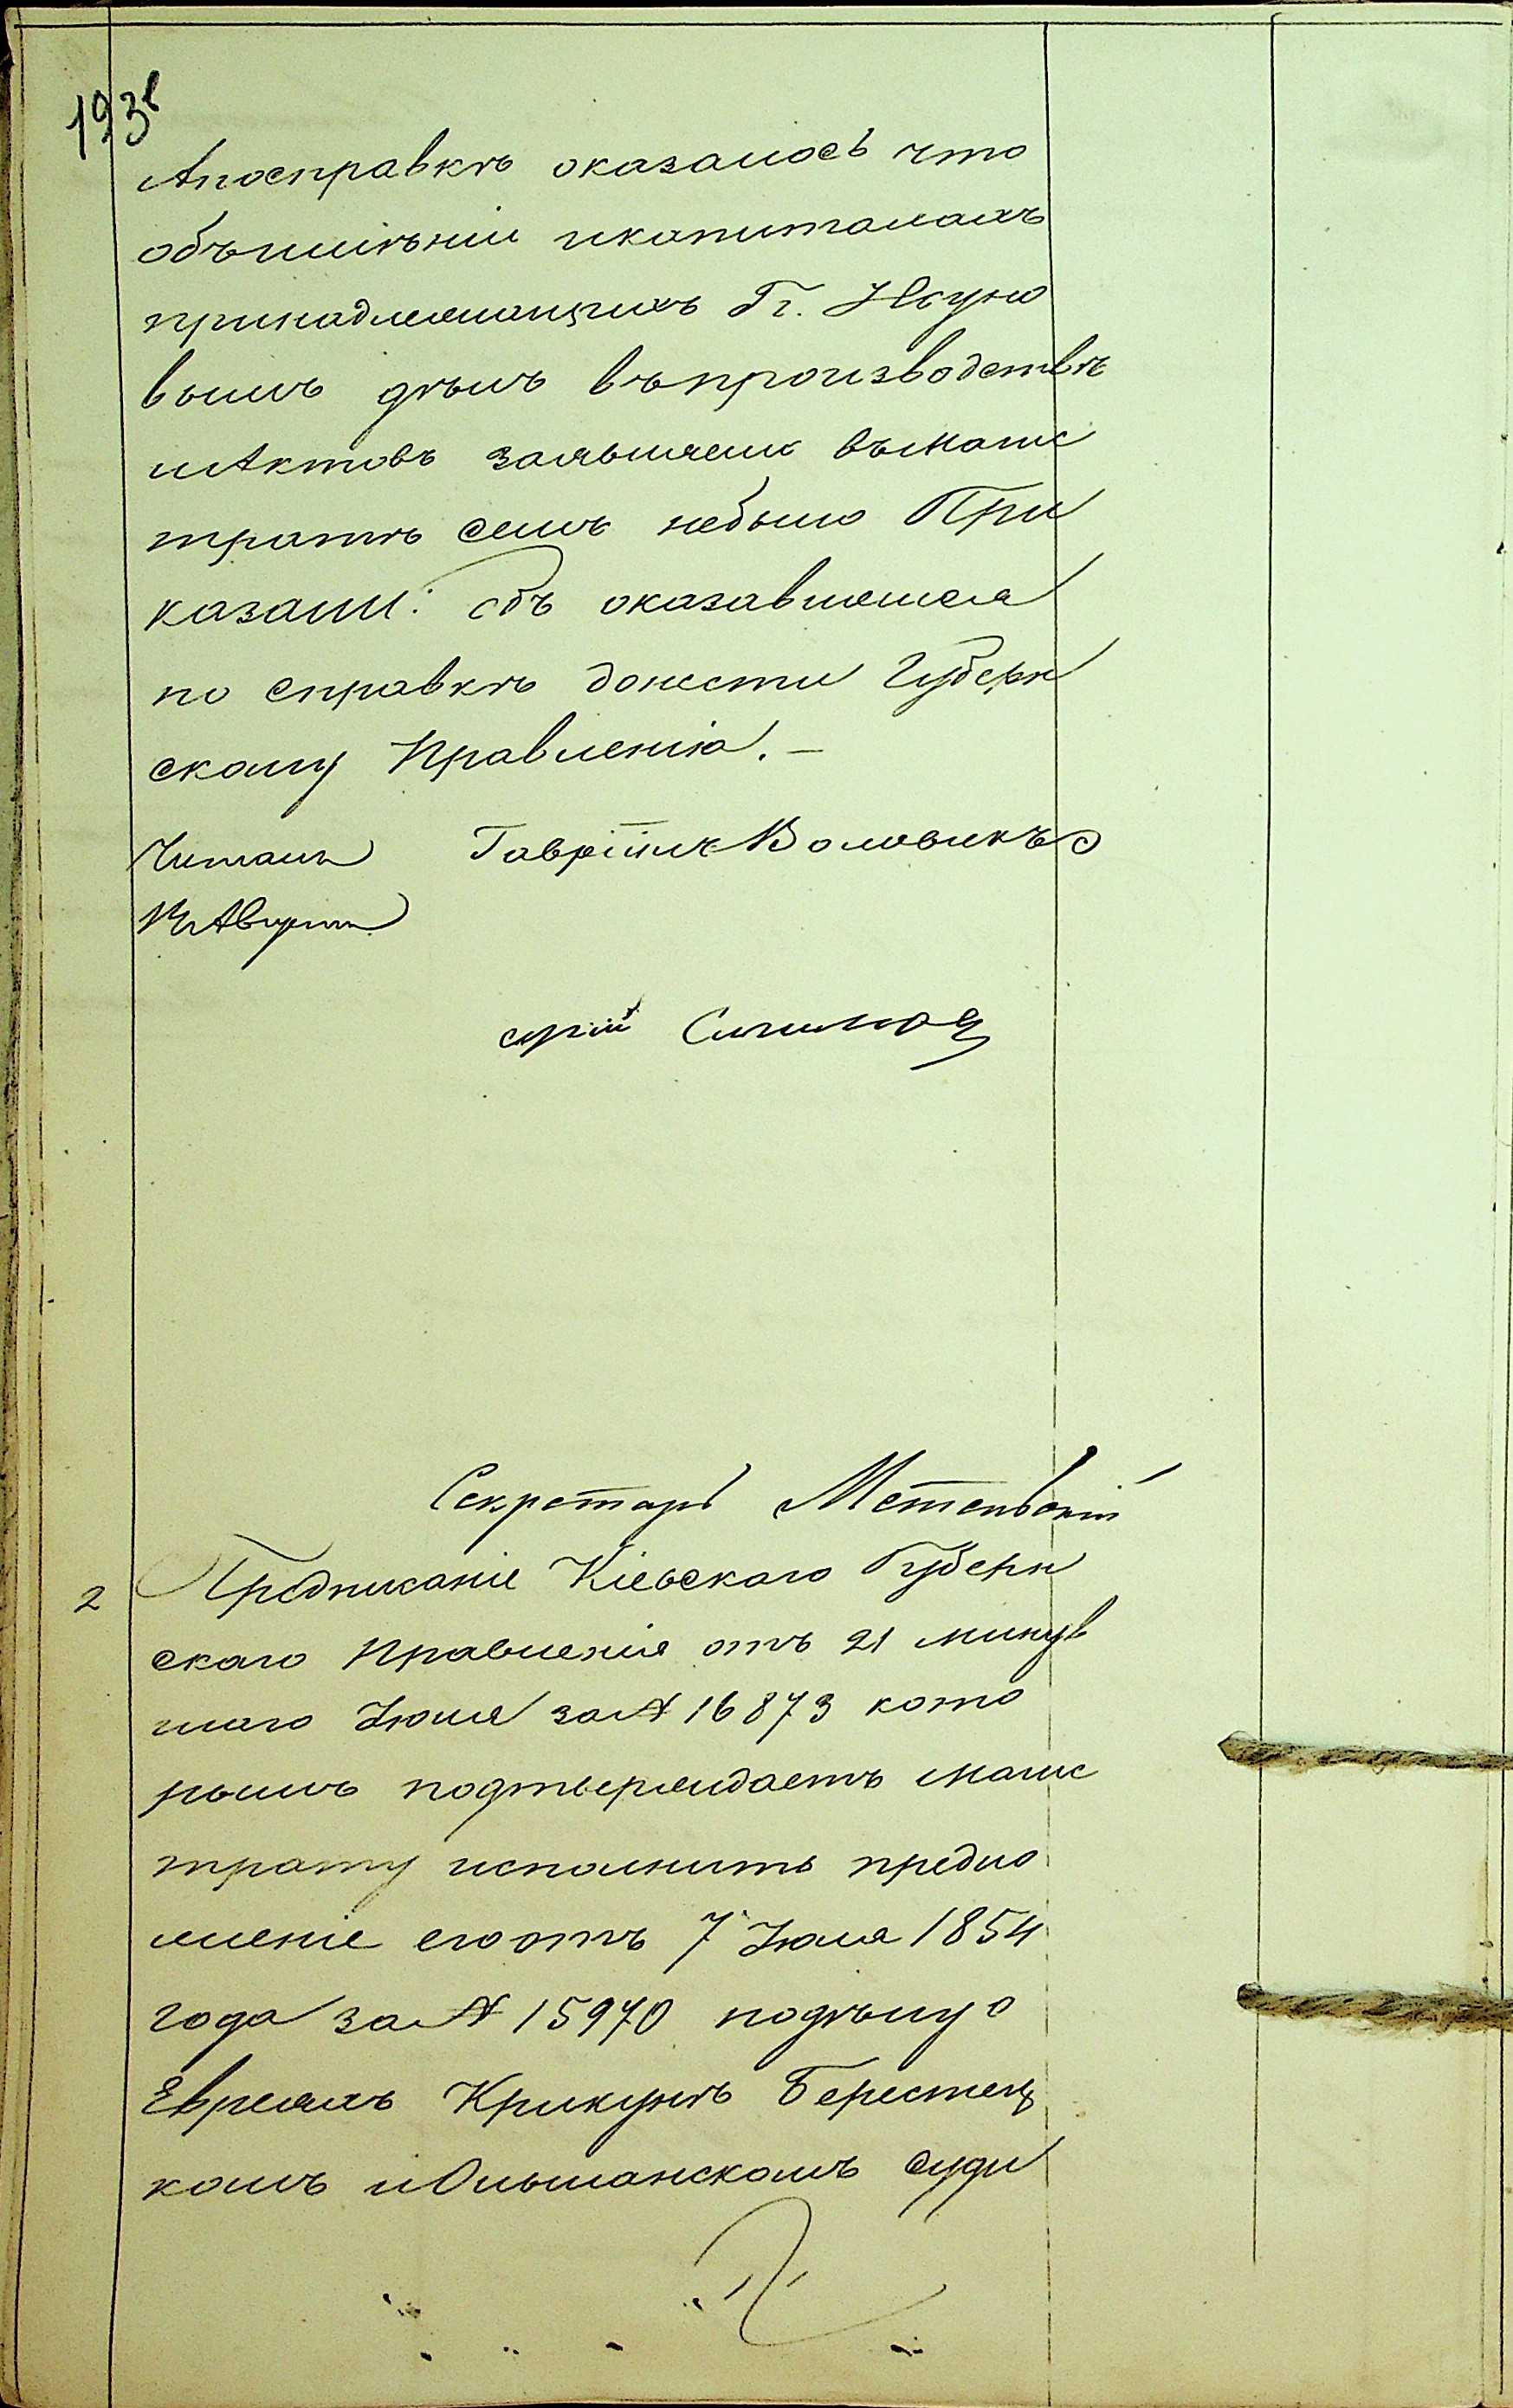 193
Апосправкѣ оказалось что
объимѣніи икапиталахъ
принадлежащихъ Гг.
вымъ дѣлъ въпроизводствѣ
иАктовъ заявляемо въМагис
тратѣ семъ небыло При
казали: Объ оказавшемся
по справкѣ донести Губерн
скому Правленію. —
Читалъ Гавріилъ Воловикъ
Секретарь
2 Предписаніе Кіевскаго Губерн
скаго Правленія отъ 21 минув
шаго Іюля за№ 16873 кото
рымъ подтверждаетъ Магис
трату исполнить предло
женіе егоотъ 7 Іюля 1854
года за№ 15970 подѣлу о
Евреяхъ Крикунѣ Берестец
комъ иОльшанскомъ суди